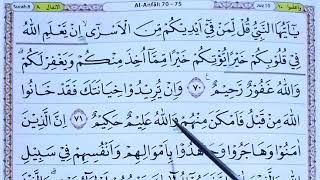 Surah 8
الأنفال ٨
Al-Anfāl 70 - 75
Juz 10
يٰٓاَيُّهَا النَّبِيُّ قُلْ لِّمَنْ فِيْٓ اَيْدِيْكُمْ مِّنَ الْاَسْرٰٓىۙ اِنْ يَّعْلَمِ اللّٰهُ
فِيْ قُلُوْبِكُمْ خَيْرًا يُّؤْتِكُمْ خَيْرًا مِّمَّآ اُخِذَ مِنْكُمْ وَيَغْفِرْ لَكُمْۗ
وَاللّٰهُ غَفُوْرٌ رَّحِيْمٌ ٧٠ وَاِنْ يُّرِيْدُوْا خِيَانَتَكَ فَقَدْ خَانُوا
اللّٰهَ مِنْ قَبْلُ فَاَمْكَنَ مِنْهُمْۗ وَاللّٰهُ عَلِيْمٌ حَكِيْمٌ ٧١ اِنَّ الَّذِيْنَ
اٰمَنُوْا وَهَاجَرُوْا وَجَاهَدُوْا بِاَمْوَالِهِمْ وَاَنْفُسِهِمْ فِيْ سَبِيْلِ